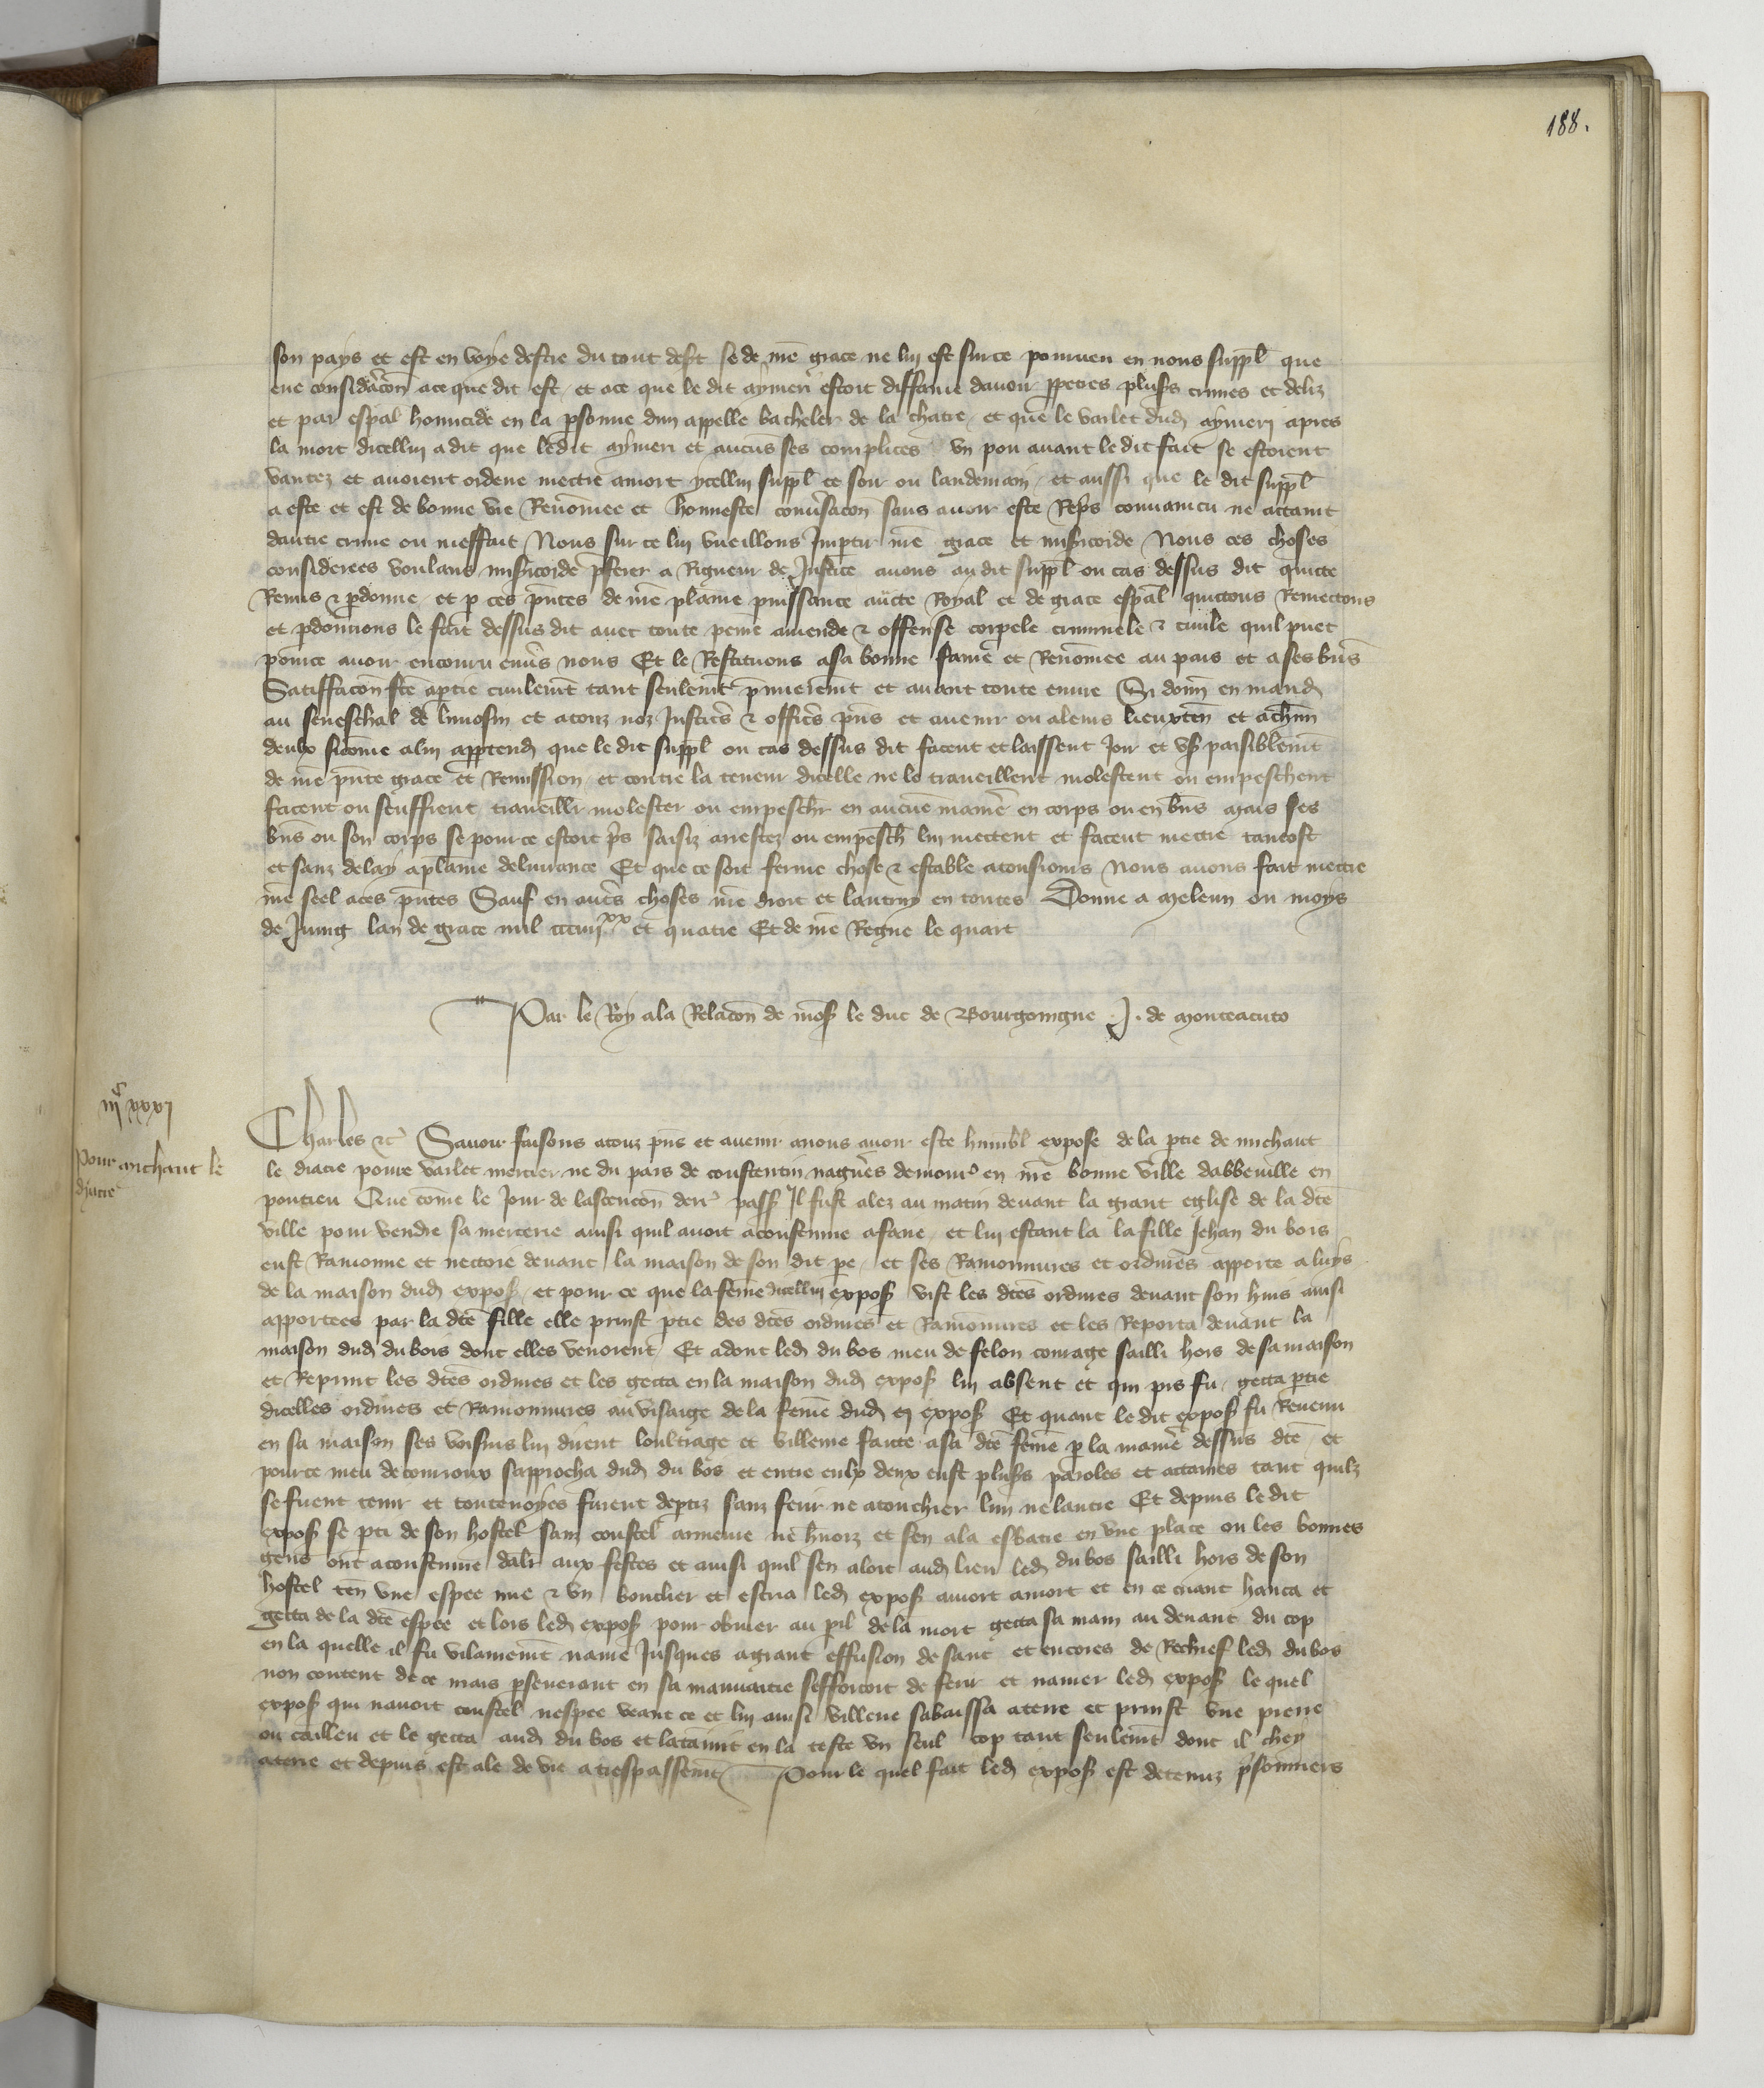 188.
son pays et est en voye destre du tout desert se de nre grace ne lui est sur ce pourveu en nous suppl que
eue consideracon a ce que dit est et a ce que le dit aymeri estoit diffame davoir perpetres plusrs crimes et deliz
et par espal homicide en la psonne dun appelle bacheler de la chatre et que le varlet dud aymeri apres
la mort dicellui a dit que ledit aymeri et aucuns ses complices un pou avant le dit fait se estoient
vantez et avoient ordene mectre a mort ycellui suppl ce soir ou landemain et aussi que le dit suppl
a este et est de bonne vie Renommee et honneste conversacon sans avoir este Repris convaincu ne actaint
dautre crime ou meffait Nous sur ce lui vueillons Impartir nre grace et misericorde Nous ces choses
considerees voulans misericorde preferer a Rigueur de Justice avons au dit suppl ou cas dessus dit quicte
Remis & pdonne et p ces pntes de nre plaine puissance aucte Royal et de grace espal quictons Remectons
et pdonnons le fait dessus dit avec toute peine amende & offense corpele criminele & civile quil puet
pour ce avoir encouru envers nous Et le Restituons a sa bonne fame et Renommee au pais et a ses biens
Satiffacon fte a ptie civilemt tant seulemt pmierement et avant toute euvre Si donn en mand
au seneschal de limosin et a touz noz Justiciers & officiers pns et avenir ou a leurs lieuxten et a chun
deulx sicome a lui appartend que le dit suppl ou cas dessus dit facent et laissent Joir et user paisiblemt
de nre pnte grace et Remission et contre la teneur dicelle ne le traveillent molestent ou empeschent
facent ou seuffrent traveillr molester ou empeschr en aucune maniere en corps ou en biens mais ses
biens ou son corps se pour ce estoit pris saisiz arrestez ou empesch lui mettent et facent mectre tantost
et sanz delay a plaine delivrance Et que ce soit ferme chose & estable a tousjours Nous avons fait mectre
nre seel a ces pntes Sauf en autres choses nre droit et lautruy en toutes Donne a meleun ou moys
de Juing lan de grace mil ccciiijxx et quatre Et de nre Regne le quart
Par le Roy a la Relacon de mons le duc de Bourgoingne . J. de monteacuto
iijc xxxj
Pour michaut le
diacre
Charles &c Savoir faisons a touz pns et avenir a nous avoir este humbl expose de la ptie de michaut
le diacre povre varlet mercier ne du pais de constentin nagueres demourant en nre bonne ville dabbeville en
pontieu Que come le Jour de lascencon derr pass Il fust alez au matin devant la grant eglise de la dte
ville pour vendre sa mercerie ainsi quil avoit acoustume a faire et lui estant la la fille Jehan du bois
eust Ramonne et nectoie devant la maison de son dit pe et ses Ramonnures et ordures apporte a luys
de la maison dud expos et pour ce que la feme dicellui expos vist les dtes ordures devant son huis ainsi
apportees par la dte fille elle prinst ptie des dtes ordures et Ramonnures et les Reporta devant la
maison dud du bois dont elles venoient Et adont led du bos meu de felon courage sailli hors de sa maison
et Reprint les dtes ordures et les gecta en la maison dud expos lui absent et qui pis fu gecta ptie
dicelles ordures et Ramonnures au visaige de la feme dud expos Et quant le dit expos fu Revenu
en sa maison ses voisins lui dirent loultrage et villenie faicte a sa dte feme p la maniere dessus dte et
pour ce meu de courroux sapprocha dud du bos et entre eulx deux eust plusrs paroles et actaines tant quilz
se furent tenir et toutevoyes furent deptiz sanz ferir ne atouchier lun ne lautre Et depuis le dit
expos se pti de son hostel sanz coustel armeure ne hnorz et sen ala esbatre en une place ou les bonnes
gens ont acoustume daler aux festes et ainsi quil sen aloit aud lieu led du bos sailli hors de son
hostel ten une espee nue & un bouclier et escria led expos a mort a mort et en ce criant hauca et
gecta de la dte espee et lors led expos pour obvier au pil de la mort gecta sa main au devant du cop
en la quelle il fu vilainemt navre Jusques a grant effusion de sanc et encores de Rechief led du bos
non content de ce mais pseverant en sa mauvaitie sefforcoit de ferir et navrer led expos le quel
expos qui navoit coustel nespee veant ce et lui ainsi villene sabaissa a terre et prinst une pierre
ou caillou et le gecta aud du bos et lataint en la teste un seul cop tant seulemt dont il chey
a terre et depuis est ale de vie a trespassemt Pour le quel fait led expos est detenuz prisonniers